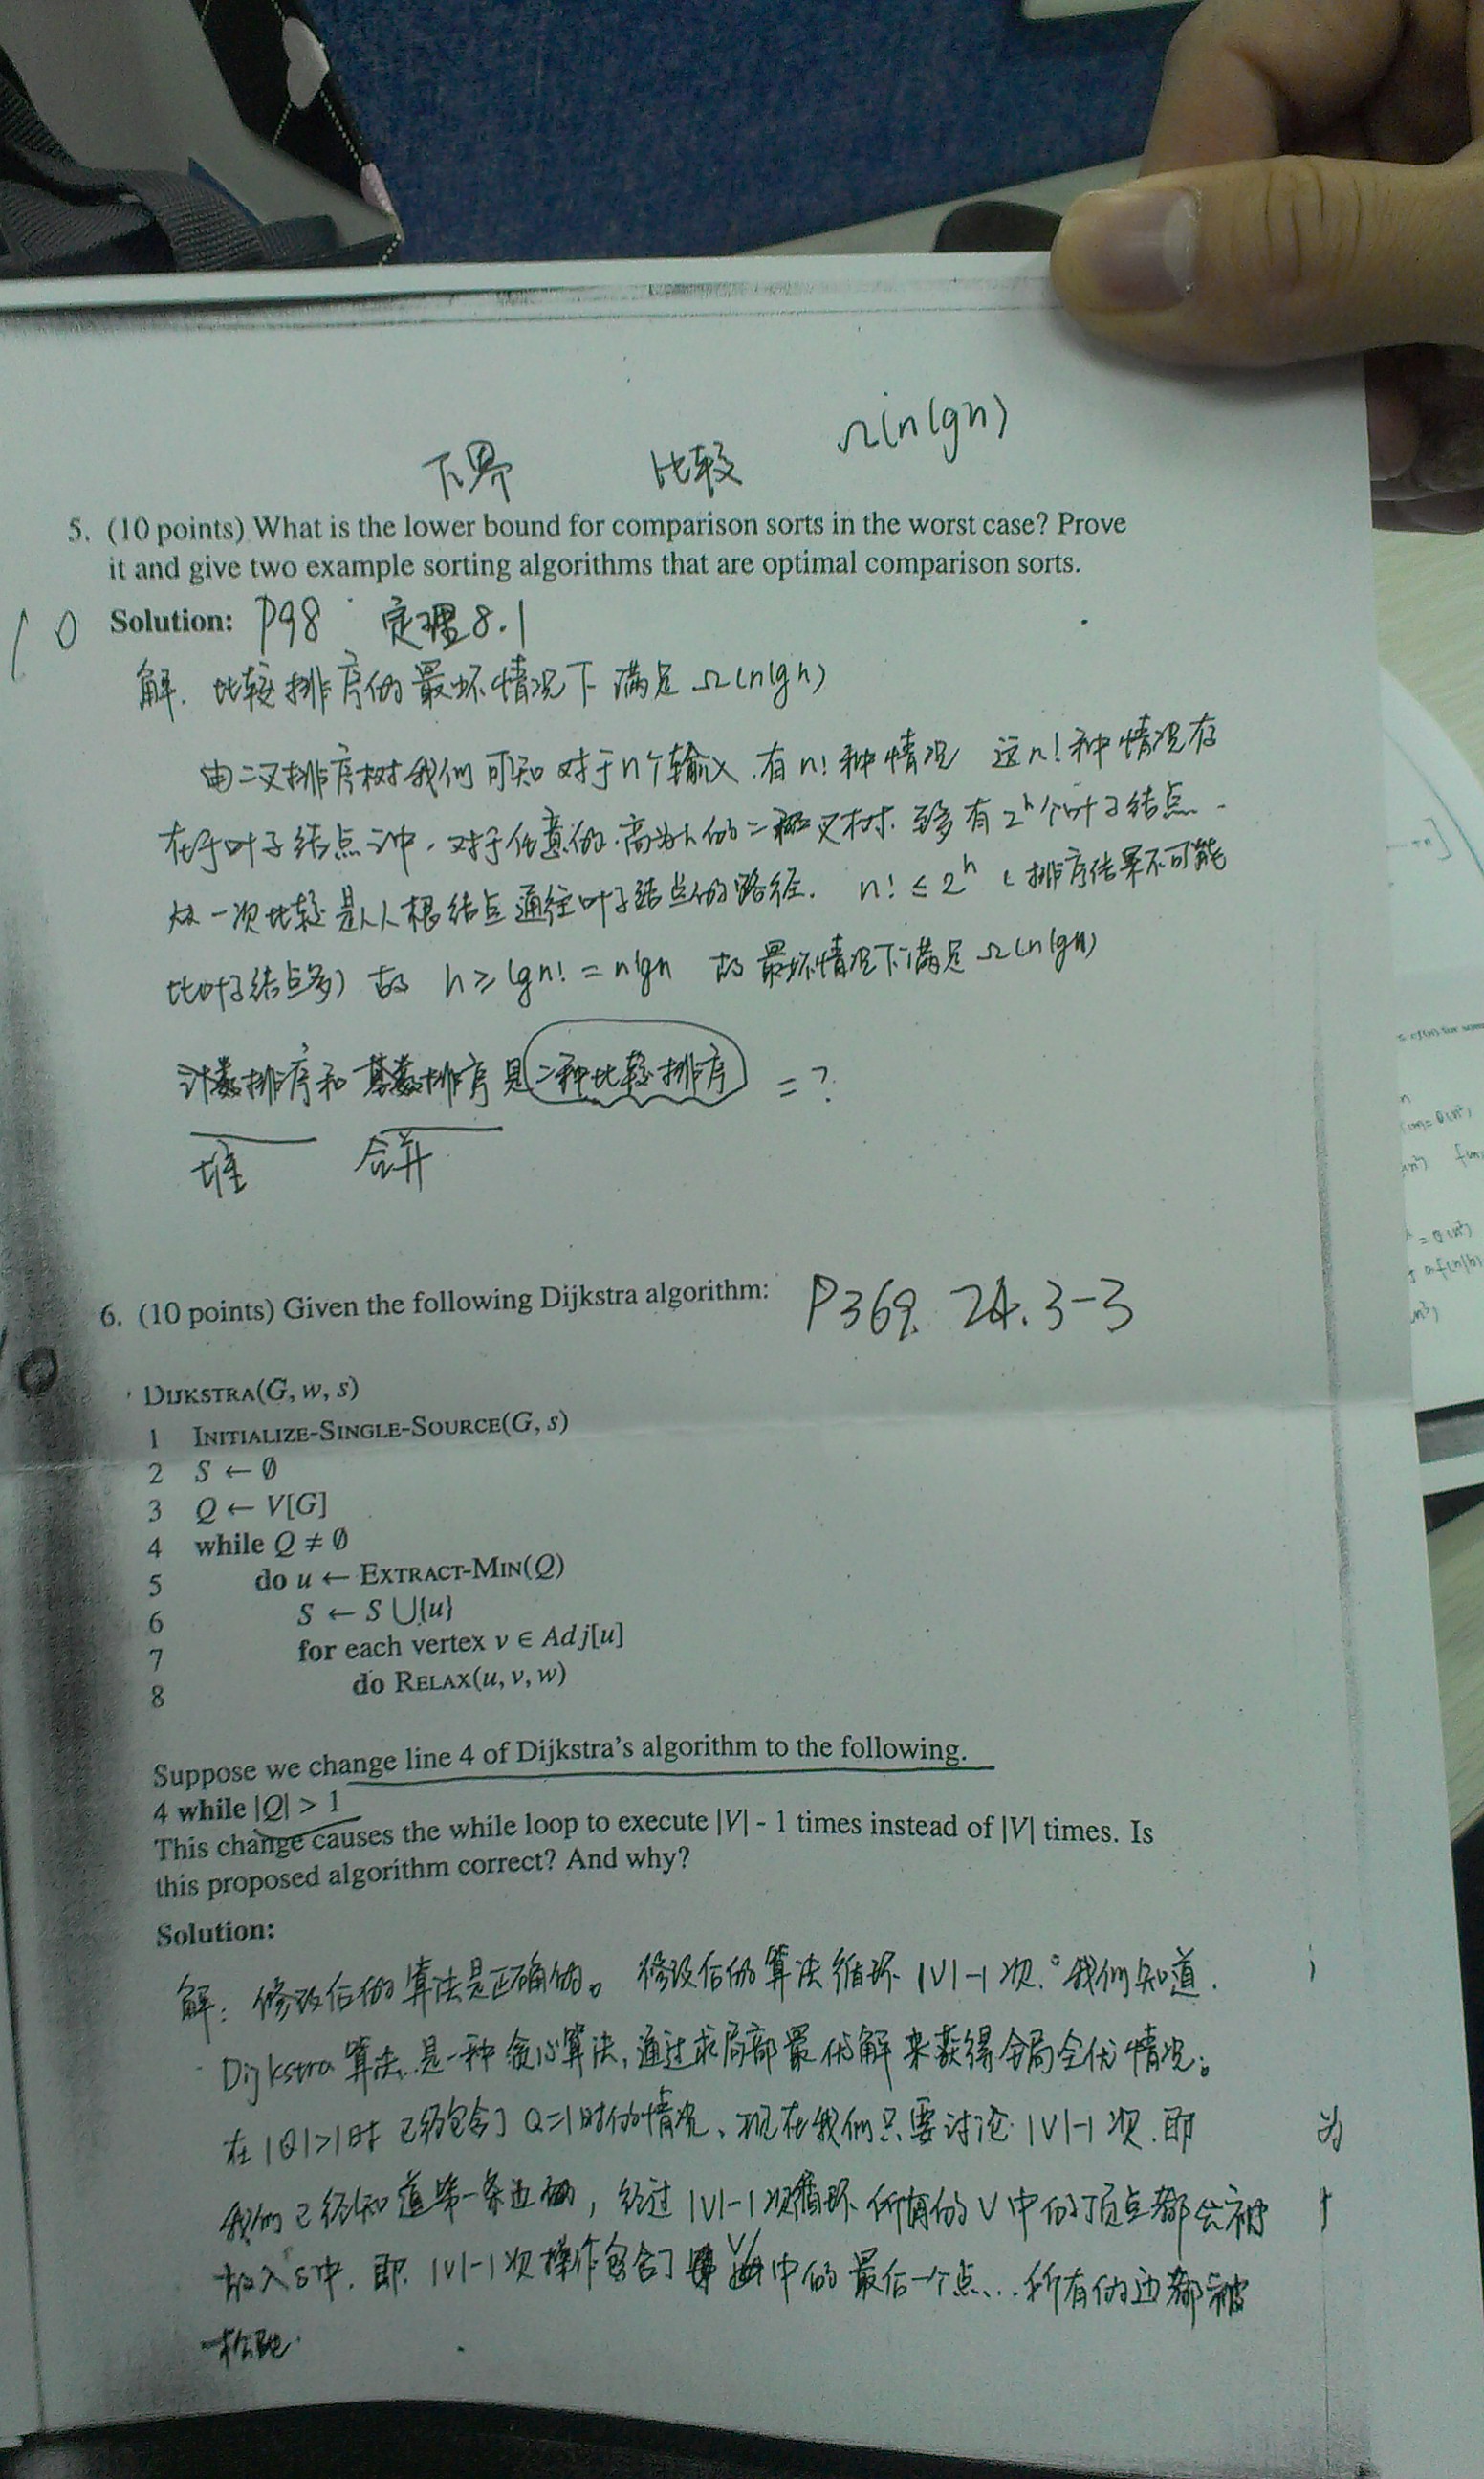 下界 比较 Ω(n lgn)
5. (10 points) What is the lower bound for comparison sorts in the worst case? Prove
it and give two example sorting algorithms that are optimal comparison sorts.
10
Solution: P98 定理8.1
解. 比较排序的最坏情况下满足 Ω(n lgn)
由二叉排序树我们可知 对于n个输入.有n!种情况 这n!种情况存
在于叶子结点之中. 对于任意的.高为h的二叉树. 至多有2^h个叶子结点.
一次比较是从根结点通往叶子结点的路径. n! ≤ 2^h (排序结果不可能
比叶子结点多) 故 h ≥ lgn! = nlgn 故最坏情况下满足 Ω(n lgn)
计数排序和基数排序是二种比较排序 = ?
堆 合并
6. (10 points) Given the following Dijkstra algorithm: P369. 24.3-3
10
DIJKSTRA(G, w, s)
1 INITIALIZE-SINGLE-SOURCE(G, s)
2 S ← ∅
3 Q ← V[G]
4 while Q ≠ ∅
5 do u ← EXTRACT-MIN(Q)
6 S ← S ⋃{u}
7 for each vertex v ∈ Adj[u]
8 do RELAX(u, v, w)
Suppose we change line 4 of Dijkstra's algorithm to the following.
4 while |Q| > 1
This change causes the while loop to execute |V| - 1 times instead of |V| times. Is
this proposed algorithm correct? And why?
Solution:
解: 修改后的算法是正确的。修改后的算法循环 |V|-1 次。我们知道.
Dijkstra 算法是一种贪心算法, 通过求局部最优解来获得全局全优情况。
在 |Q|>1时 已经包含了 Q=1时的情况、现在我们只要讨论 |V|-1 次. 即
我们已经知道第一条边的, 经过 |V|-1 次循环 所有的V中的顶点都会被
放入S中. 即. |V|-1 次操作包含了 V中的最后一个点... 所有的边都被
松弛.